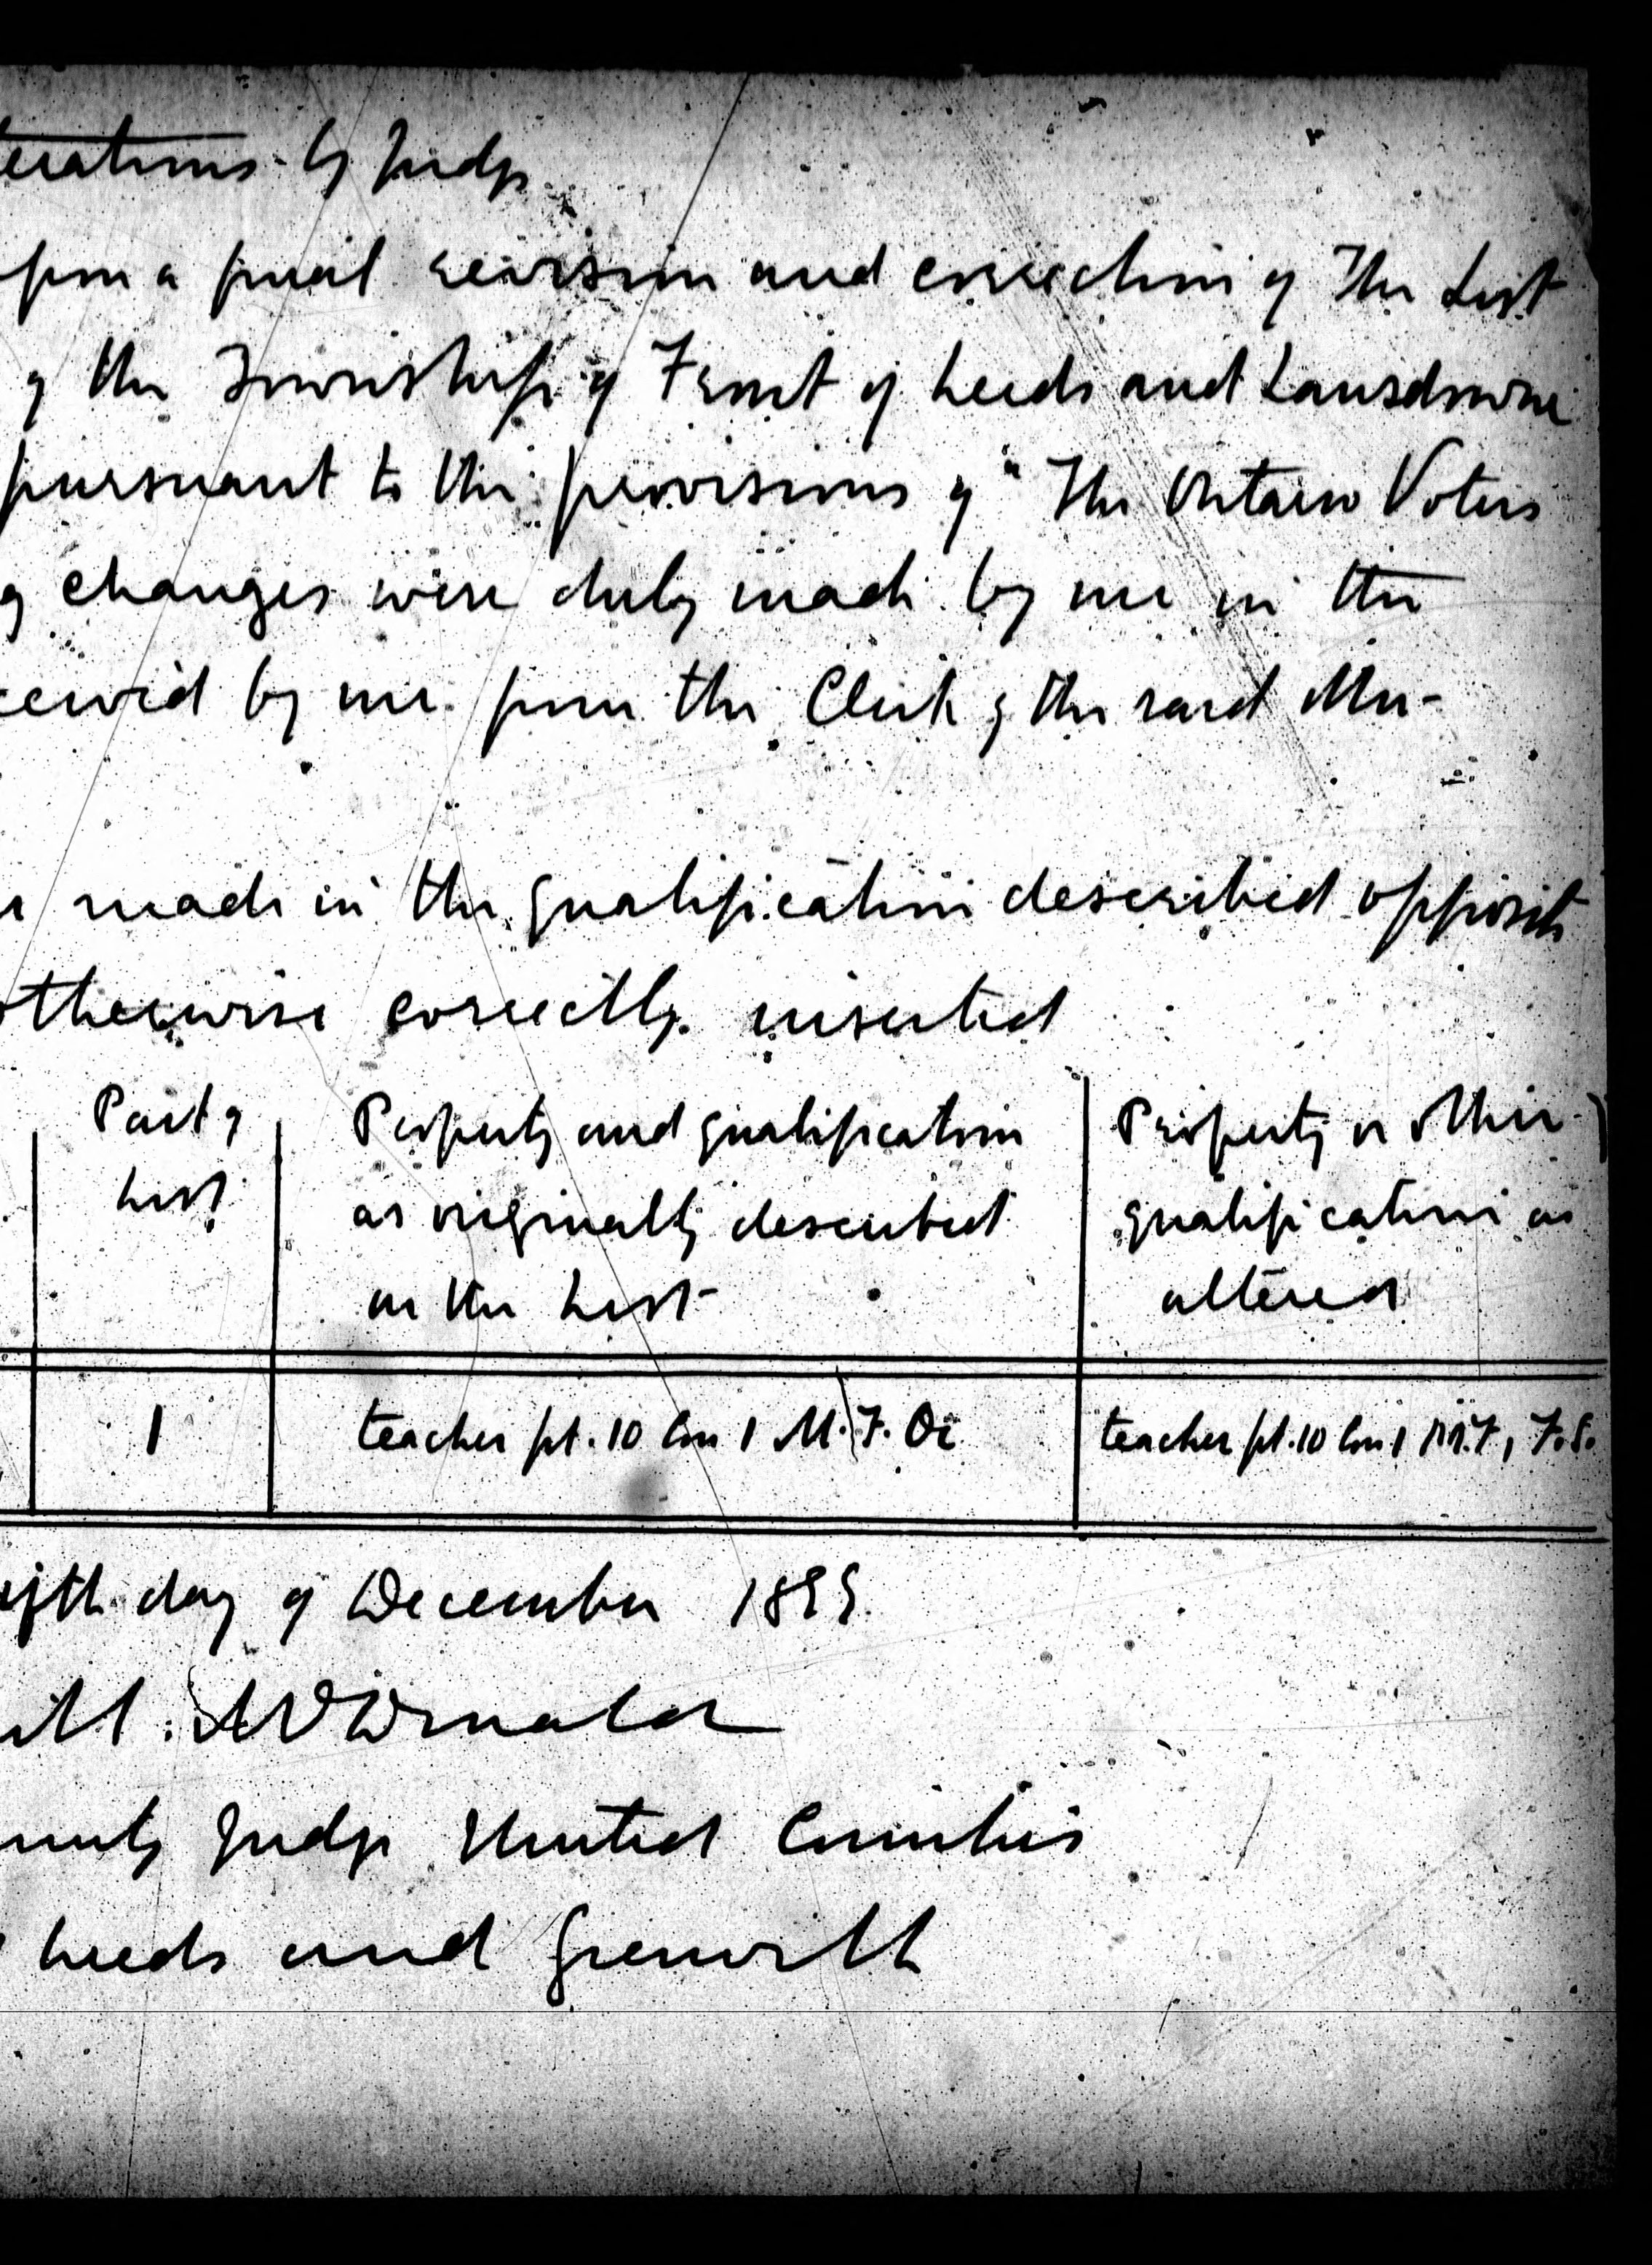 terations by Judge
pon a final revision and correction of The List
of the Township of Front of Leeds and Lansdowne
pursuant to the provisions of "The Ontario Voters
g changes were duly made by me in the
ceived by me from the Clerk of the said Mu-
made in the qualification described opposite
otherwise correctly inserted
Part of
List
Property and qualification
as originally described
on the List
Property or other
qualification as
altered
1
teacher pt. 10 Con 1 M.F. Oc
teacher pt. 10 Con 1 M.F, F.S.
fth day of December 1899.
McDonald
unty Judge United Counties
Leeds and Grenville